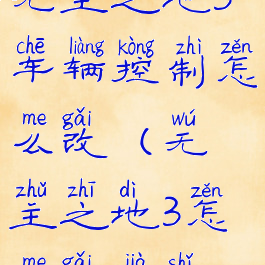 无主之地3
chē liàng kòng zhì zěn
车辆控制怎
me gǎi wú
么改（无
zhǔ zhī dì zěn
主之地3怎
me gǎi jià shǐ